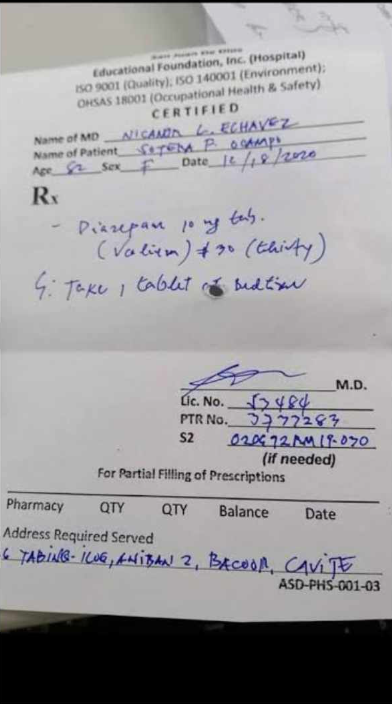 San Juan De Dios
Educational Foundation, Inc. (Hospital)
ISO 9001 (Quality); ISO 140001 (Environment);
OHSAS 18001 (Occupational Health & Safety)
CERTIFIED
Name of MD NICANOR L. ECHAVEZ
Name of Patient SOTERA P. OCAMPO
Age 82 Sex F Date /18/2020
Rx
- Diazepam 10 mg tab.
(Valium) # 30 (thirty)
S: Take 1 tablet at bedtime
M.D.
Lic. No. 57484
PTR No. 3777283
S2
(if needed)
For Partial Filling of Prescriptions
Pharmacy QTY QTY Balance Date
Address Required Served
6 TABING-ILOG, ANIBAN 2, BACOOR, CAVITE
ASD-PHS-001-03